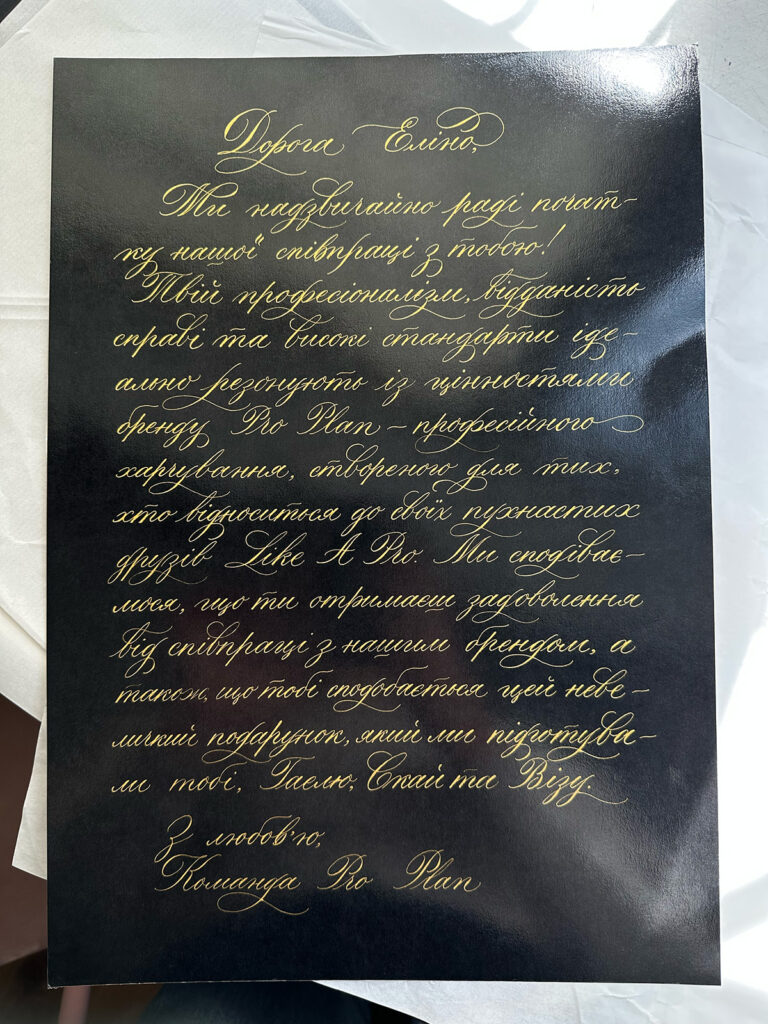 Дорога Еліно,
Ми надзвичайно раді почат-
ку нашої співпраці з тобою!
Твій професіоналізм, відданість
справі та високі стандарти іде-
ально резонують із цінностями
бренду Pro Plan – професійного
харчування, створеного для тих,
хто відноситься до своїх пухнастих
друзів Like A Pro. Ми сподіває-
мося, що ти отримаєш задоволення
від співпраці з нашим брендом, а
також, що тобі сподобається цей неве-
личкий подарунок, який ми підготува-
ли тобі, Гаелю, Скай та Візу.
З любов'ю,
Команда Pro Plan